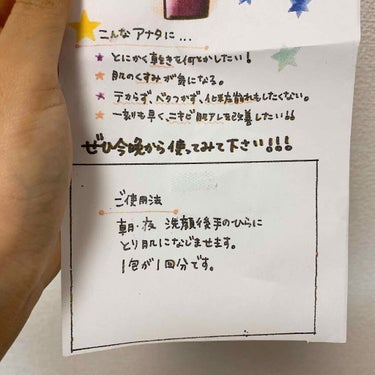 こんなアナタに...
★ とにかく乾きを何とかしたい!
★ 肌のくすみが気になる。
★ テカらず、ベタつかず、化粧崩れもしたくない。
★ 一刻も早く、ニキビ肌アレを改善したい!!
ぜひ今晩から使ってみて下さい!!!
ご使用法
朝・夜 洗顔後手のひらに
とり肌になじませます。
1包が1回分です。